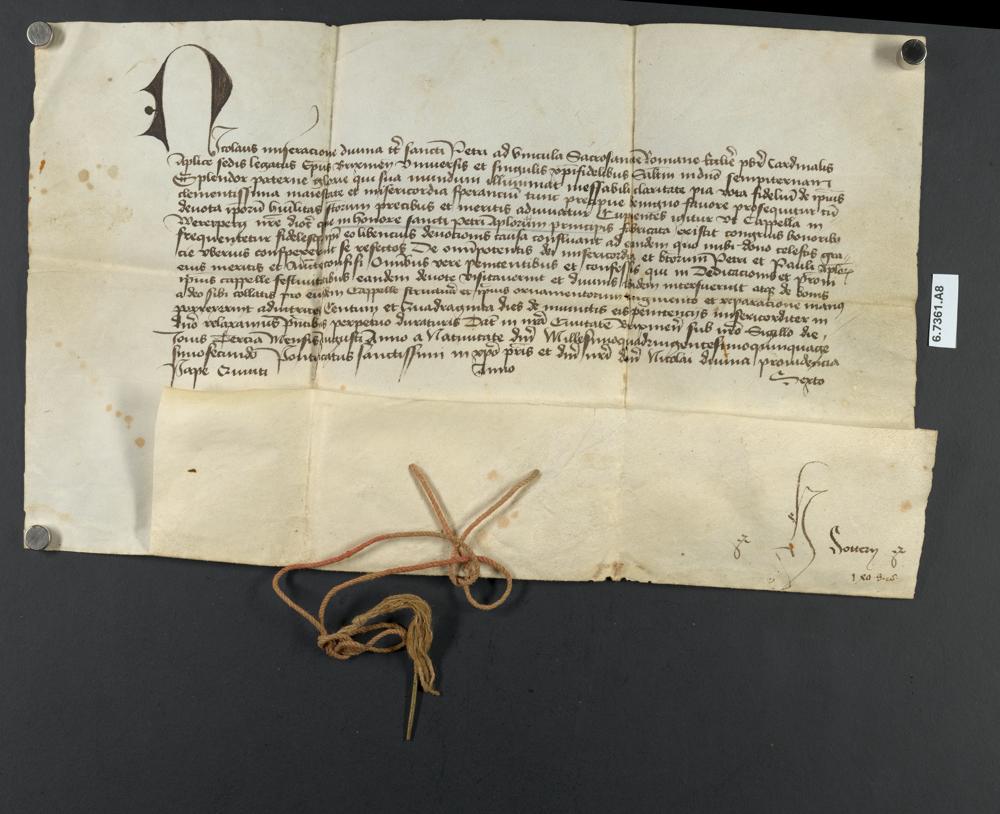 Nicolaus miseracione divina tt̃ sancti Petri ad Vincula Sacrosancte Romane Ecclie p̃br Cardinalis
Aplice sedis legatus Ep̃us Brixineñ Universis et singulis xp̃ifidelibus Saltm in dño sempiternam
Splendor paterne glorie qui sua mundum illuminat ineffabili claritate pia vota fidelium de ip̃ius
clementissima maiestate et misericordia sperancium tunc precipue benigno favore prosequitur cũ
devota ip̃orum humilitas sc̃torum precibus et meritis adiuvatur Cupientes igitur ut Cappella in
nr̃e dioc̃ que in honore sancti Petri Aplorum principis fabricata existit congruis honoribȝ
frequentetur fidelesqȝ ip̃i eo libencius devocionis causa confluant ad eandem quo inibi dono celestis gr̃a
cie uberius conspexerint se refectos De omnipotentis dei misericordia et bt̃orum Petri et Pauli Aplorȝ
eius meritis et auc̃te confisi Omnibus vere penitentibus et confessis qui in Dedicacionis et Patroni
ip̃ius cappelle festivitatibus eandem devote visitaverint et divinis ibidem interfuerint atqȝ de bonis
a deo sibi collatis pro eiusdem Cappelle structura et ip̃ius ornamentorum augmento et reparacione manus
porrexerint adiutrices Centum et Quadraginta dies de iniunctis eis penitencijs misericorditer in
dño relaxamus p̃ntibus perpetuo duraturis Dat̃ in nr̃a Civitate Brixineñ sub nr̃o Sigillo die
Jovis Tercia Mensis Augusti Anno a Nativitate dñi Millesimoquadringentesimoquinquage
simosecundo Pontificatus sanctissimi in xp̃o p̃ris et dñi nr̃i dñi Nicolai divina providencia
Pape Quinti Anno Sexto